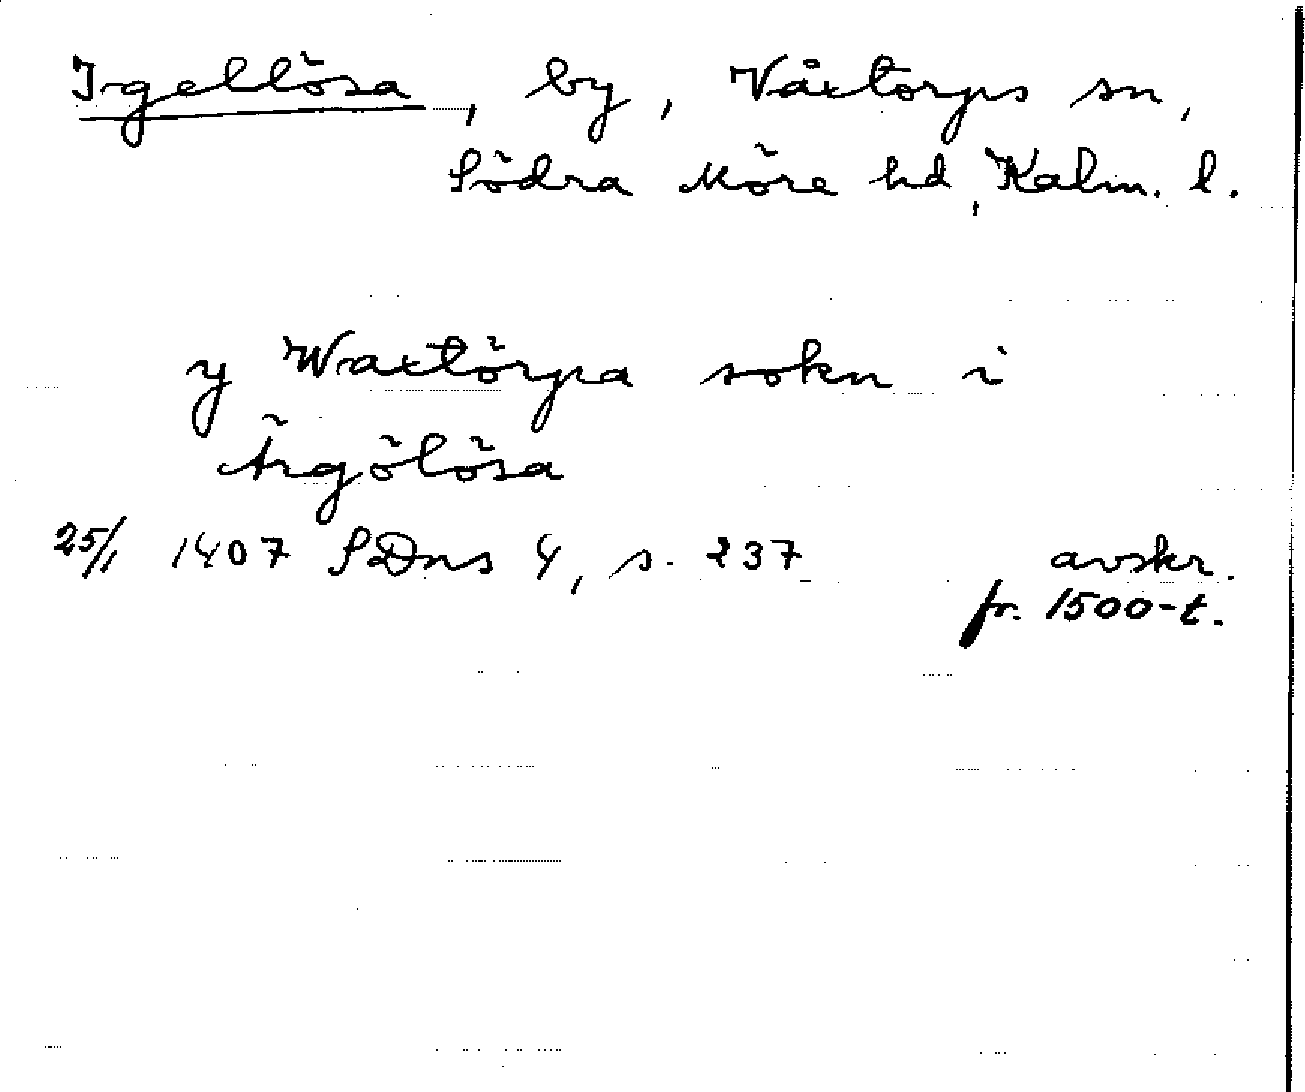 Igellösa, by, Växtorps sn,
Södra Möre hd, Kalm. l.
y Waxtörpa sokn i
Ärgölösa
25/1 1407 SDns 4, s. 237 avskr.
fr. 1500-t.